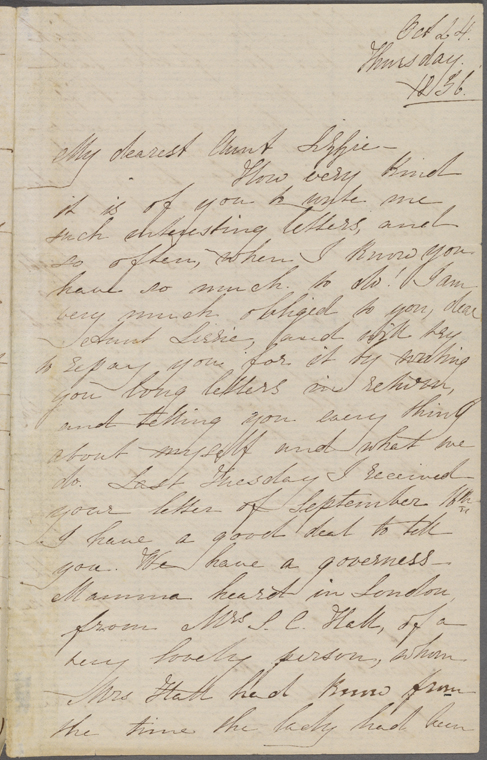 Oct 24.
Thursday.
1856.
My dearest Aunt Lizzie—
How very kind
it is of you to write me
such interesting letters, and
so often, when I know you
have so much to do! I am
very much obliged to you, dear
Aunt Lizzie, and will try
to repay you for it by writing
you long letters in return,
and telling you every thing
about myself and what we
do. Last Tuesday I received
your letter of September 16th
I have a good deal to tell
you. We have a governess—
Mamma heard in London
from Mrs S. C. Hall, of a
very lovely person, whom
Mrs Hall had known from
the time the lady had been